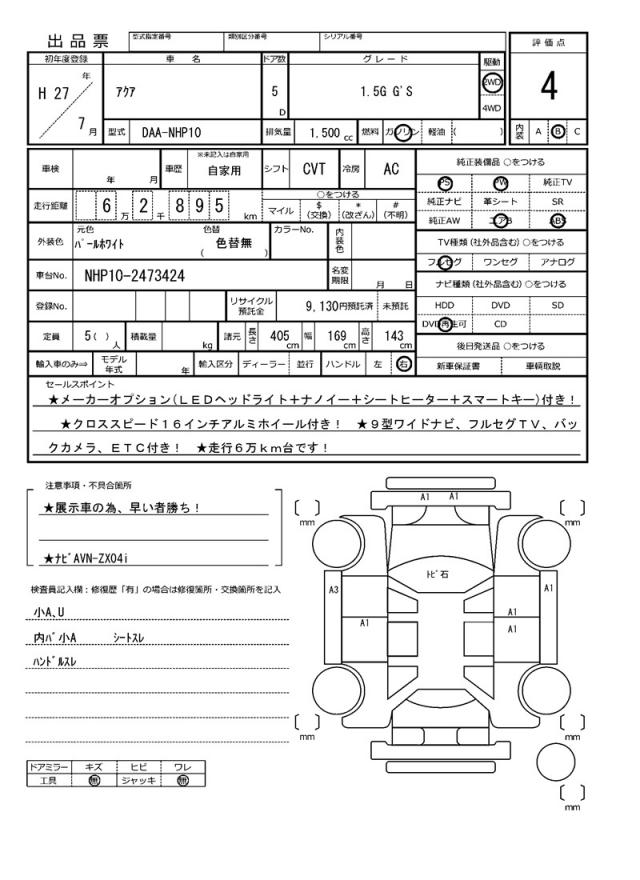 出品票
型式指定番号 類別区分番号 シリアル番号
評価点
初年度登録 車 名 ドア数 グレード 駆動
H 27 年 アクア 5 D 1.5G G'S 2WD 4
4WD
7 月 型式 DAA-NHP10 排気量 1.500 cc 燃料 ガソリン 軽油 ( ) 内装 A B C
車検 年 月 車歴 ※未記入は自家用 自家用 シフト CVT 冷房 AC
純正装備品 ○をつける
PS PW 純正TV
走行距離 6 万 2 千 8 9 5 km ○をつける
マイル $ (交換) * (改ざん) # (不明)
純正ナビ 革シート SR
純正AW エアB ABS
外装色 元色 パールホワイト 色替 ( 色替無 ) カラーNo. 内装色
TV種類(社外品含む)○をつける
フルセグ ワンセグ アナログ
車台No. NHP10-2473424 名変期限 月 日
ナビ種類(社外品含む)○をつける
登録No. リサイクル預託金 9,130円預託済 未預託
HDD DVD SD
DVD再生可 CD
定員 5( )人 積載量 kg 諸元 長さ 405 cm 幅 169 cm 高さ 143 cm
後日発送品 ○をつける
輸入車のみ⇒ モデル年式 年 輸入区分 ディーラー 並行 ハンドル 左 右
新車保証書 車輌取説
セールスポイント
★メーカーオプション(LEDヘッドライト+ナノイー+シートヒーター+スマートキー)付き!
★クロススピード16インチアルミホイール付き! ★9型ワイドナビ、フルセグTV、バッ
クカメラ、ETC付き! ★走行6万km台です!
注意事項・不具合箇所
★展示車の為、早い者勝ち!
★ナビAVN-ZX04i
検査員記入欄:修復歴「有」の場合は修復箇所・交換箇所を記入
小A、U
内バ小A シートスレ
ハンドルスレ
ドアミラー キズ ヒビ ワレ
工具 無 ジャッキ 無
A1 A1
mm mm
トビ石
A3 A1
A1
A1 A1
mm mm
mm